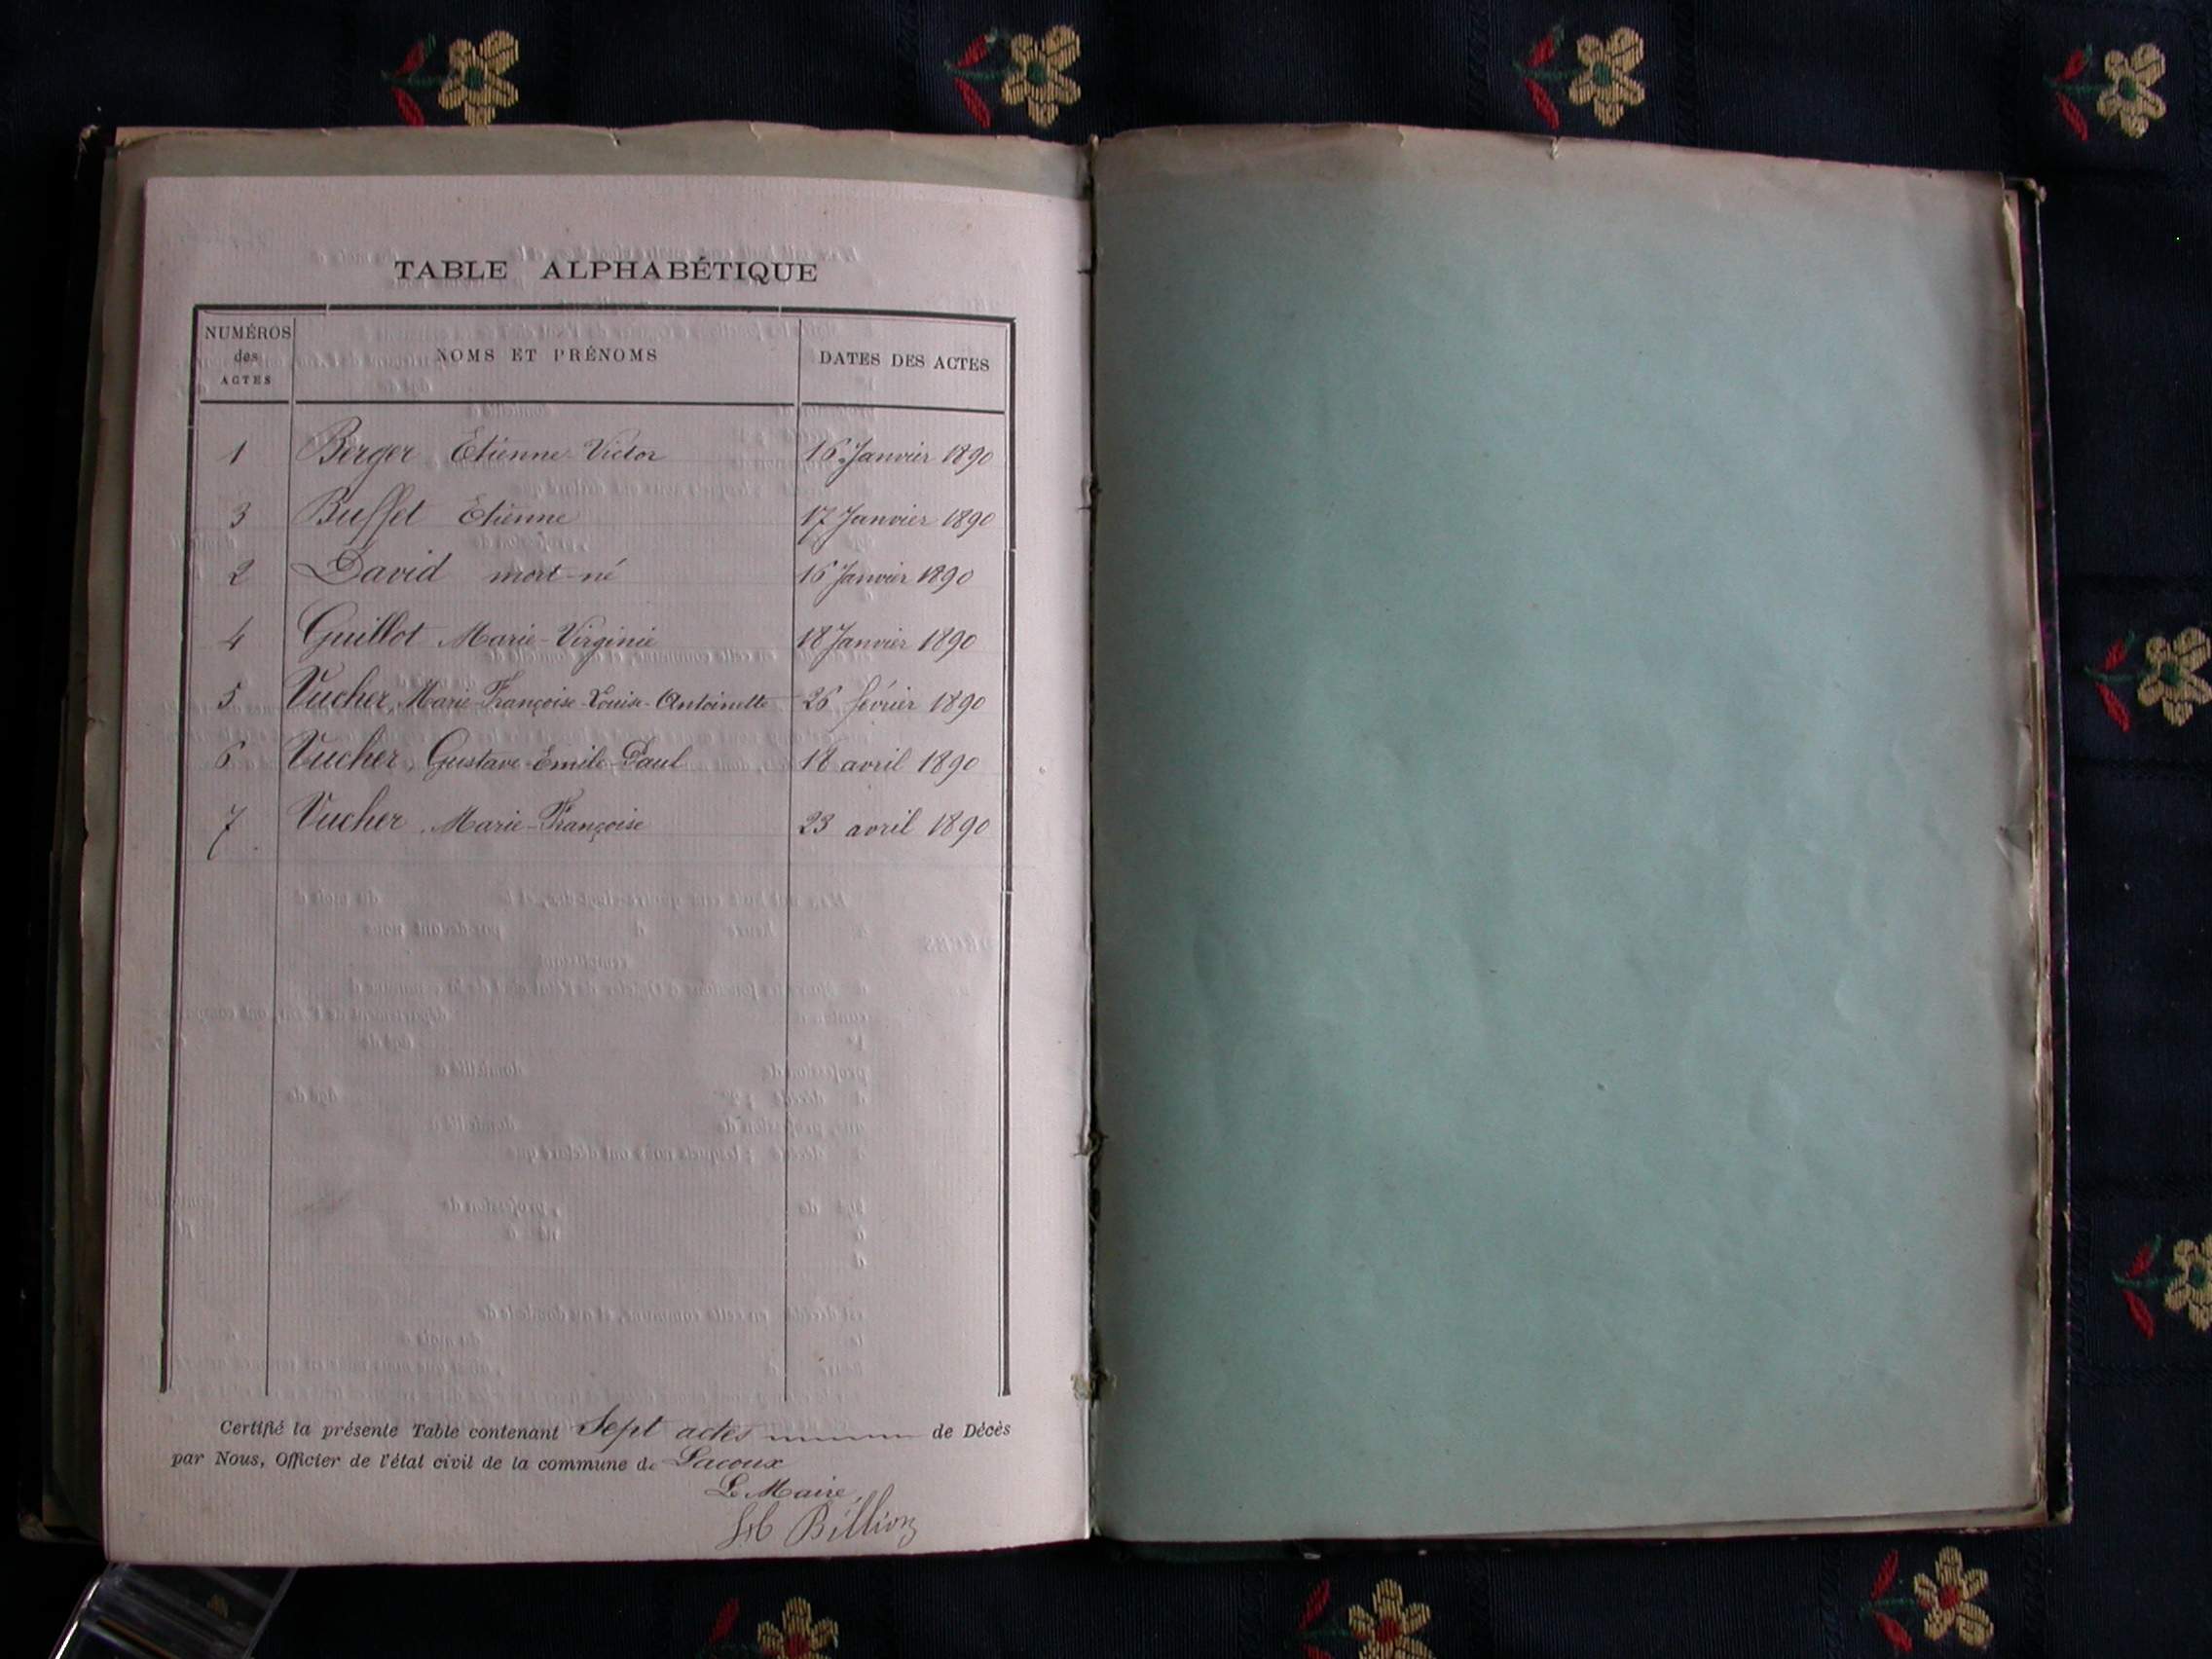 TABLE ALPHABÉTIQUE
NUMÉROS des ACTES NOMS ET PRÉNOMS DATES DES ACTES
1 Berger Etienne Victor 16 Janvier 1890
3 Buffet Etienne 17 Janvier 1890
2 David mort-né 16 Janvier 1890
4 Guillot Marie-Virginie 18 Janvier 1890
5 Vucher, Marie-Françoise-Louise-Antoinette 26 février 1890
6 Vucher, Gustave-Emile-Paul 18 avril 1890
7 Vucher, Marie-Françoise 23 avril 1890
Certifié la présente Table contenant Sept actes de Décès
par Nous, Officier de l'état civil de la commune de Lacoux
Le Maire,
Billion